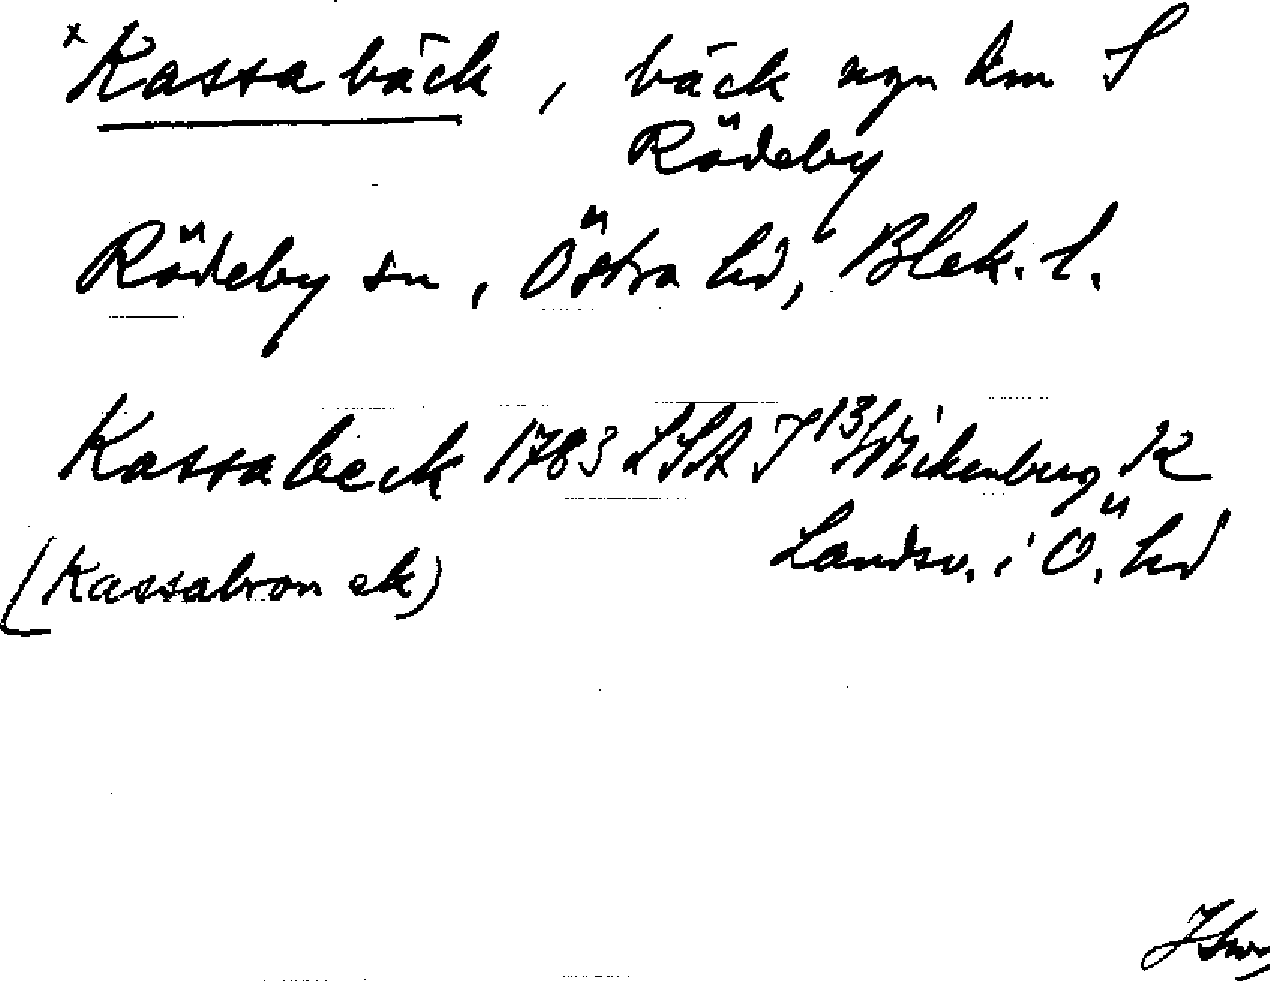 *Kassabäck, bäck ngn km S
Rödeby
Rödeby sn, Östra hd, Blek. l.
Kassabeck 1783 LSA J 13 Wikenberg K
Landsv. i Ö. hd
(Kassabron ek)